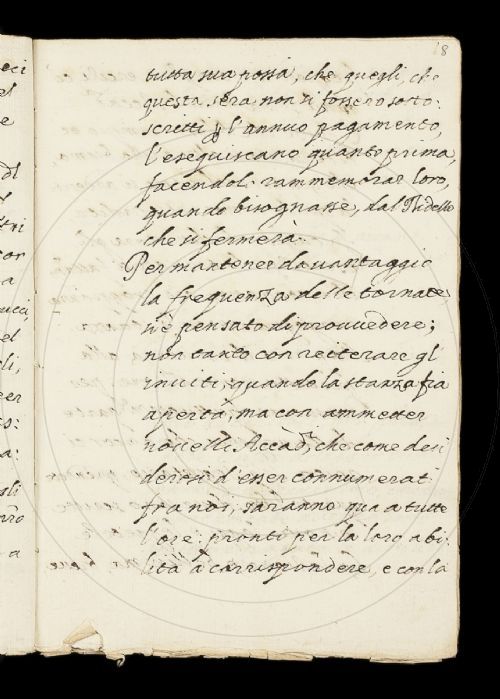 18
tutta sua possa, che quegli, che
questa sera non si fossero sotto:
scritti p l'annuo pagamento,
l'eseguiscano quanto prima,
facendoli rammemorar loro,
quando bisognasse, dal Bidello
che si fermerà.
Per mantener davantaggio
la frequenza delle tornate
s'è pensato di provvedere;
non tanto con reiterare gl'
inviti, quando la stanza sia
aperta, ma con ammetter
novelli Accad., che come desi
derosi d'esser connumerati
fra noi, saranno qua a tutte
l'ore pronti per la loro abi:
lità a carrispondere, e con la
eci
el
e
tri
cor
a
ucci
el
li,
eer
to:
a:
gli
rro
a